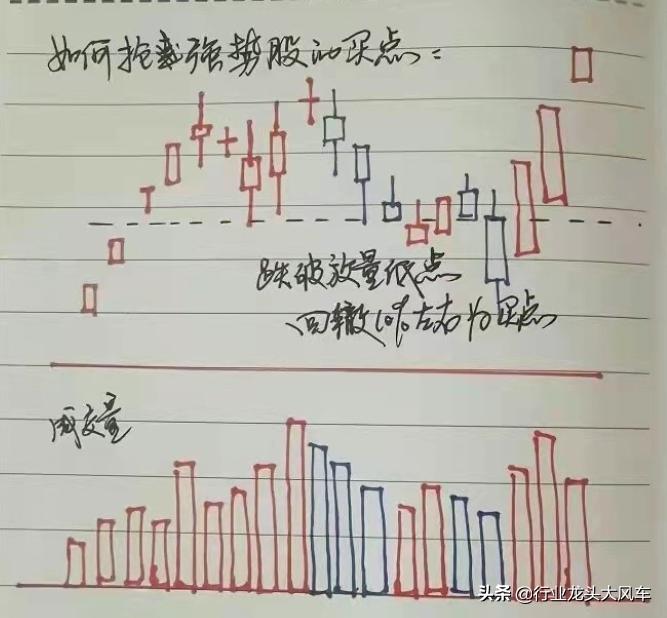 如何抢截强势股的买点：
跌破放量低点
回辙10%左右为买点
成交量
头条 @行业龙头大风车